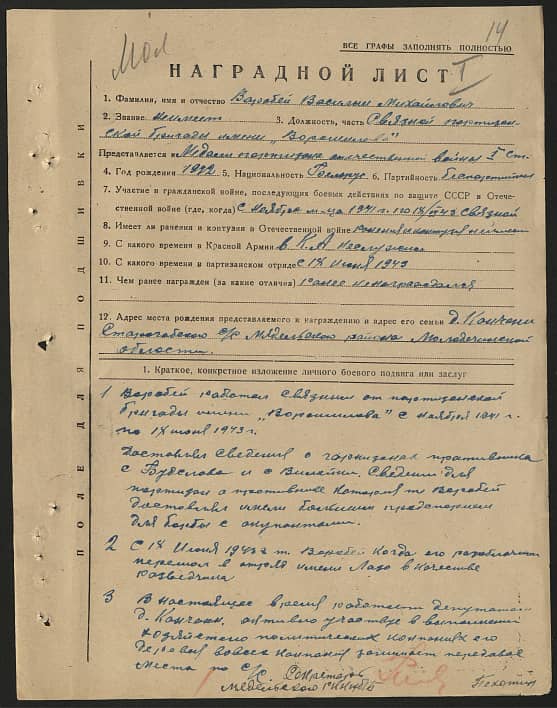 14
Мол
ВСЕ ГРАФЫ ЗАПОЛНЯТЬ ПОЛНОСТЬЮ
НАГРАДНОЙ ЛИСТ I
1. Фамилия, имя и отчество Воробей Василий Михайлович
2. Звание неимеет 3. Должность, часть Связной партизан-
ской бригады имени „Ворошилова"
Представляется Медали партизана отечественной войны I ст.
4. Год рождения 1922 5. Национальность Белорус 6. Партийность беспартийный
7. Участие в гражданской войне, последующих боевых действиях по защите СССР в Отече-
ственной войне (где, когда) с Ноября м-ца 1941 г. по связной
8. Имеет ли ранения и контузии в Отечественной войне
9. С какого времени в Красной Армии в К.А. неслужил
10. С какого времени в партизанском отряде с 18 Июня 1943
11. Чем ранее награжден (за какие отличия) ранее ненаграждался
12. Адрес места рождения представляемого к награждению и адрес его семьи д. Кончани
с/с Мядельского района Молодечненской
области.
1. Краткое, конкретное изложение личного боевого подвига или заслуг
1 Воробей работал Связным от партизанской
бригады имени „Ворошилова" с Ноября 1941 г.
по июня 1943 г.
Доставлял Сведения о гарнизонах противника
с Будслова и с Вилейки. Сведения для
партизан о противнике которые т. Воробей
доставлял имели большие
для борьбы с окупантами.
2 С 18 Июня 1943 г т. Воробей Когда его разоблачили
перешол в отряд имени Лазо в качестве
разведчика
3 В настоящее время работает депутатом
д. Кончани, активно участвуе в выполнении
хозяйствено политических кампаниях его
деревня во всех кампаниях занимает передовые
места по с/с Секретарь
Мядельского
ПОЛЕ ДЛЯ ПОДШИВКИ